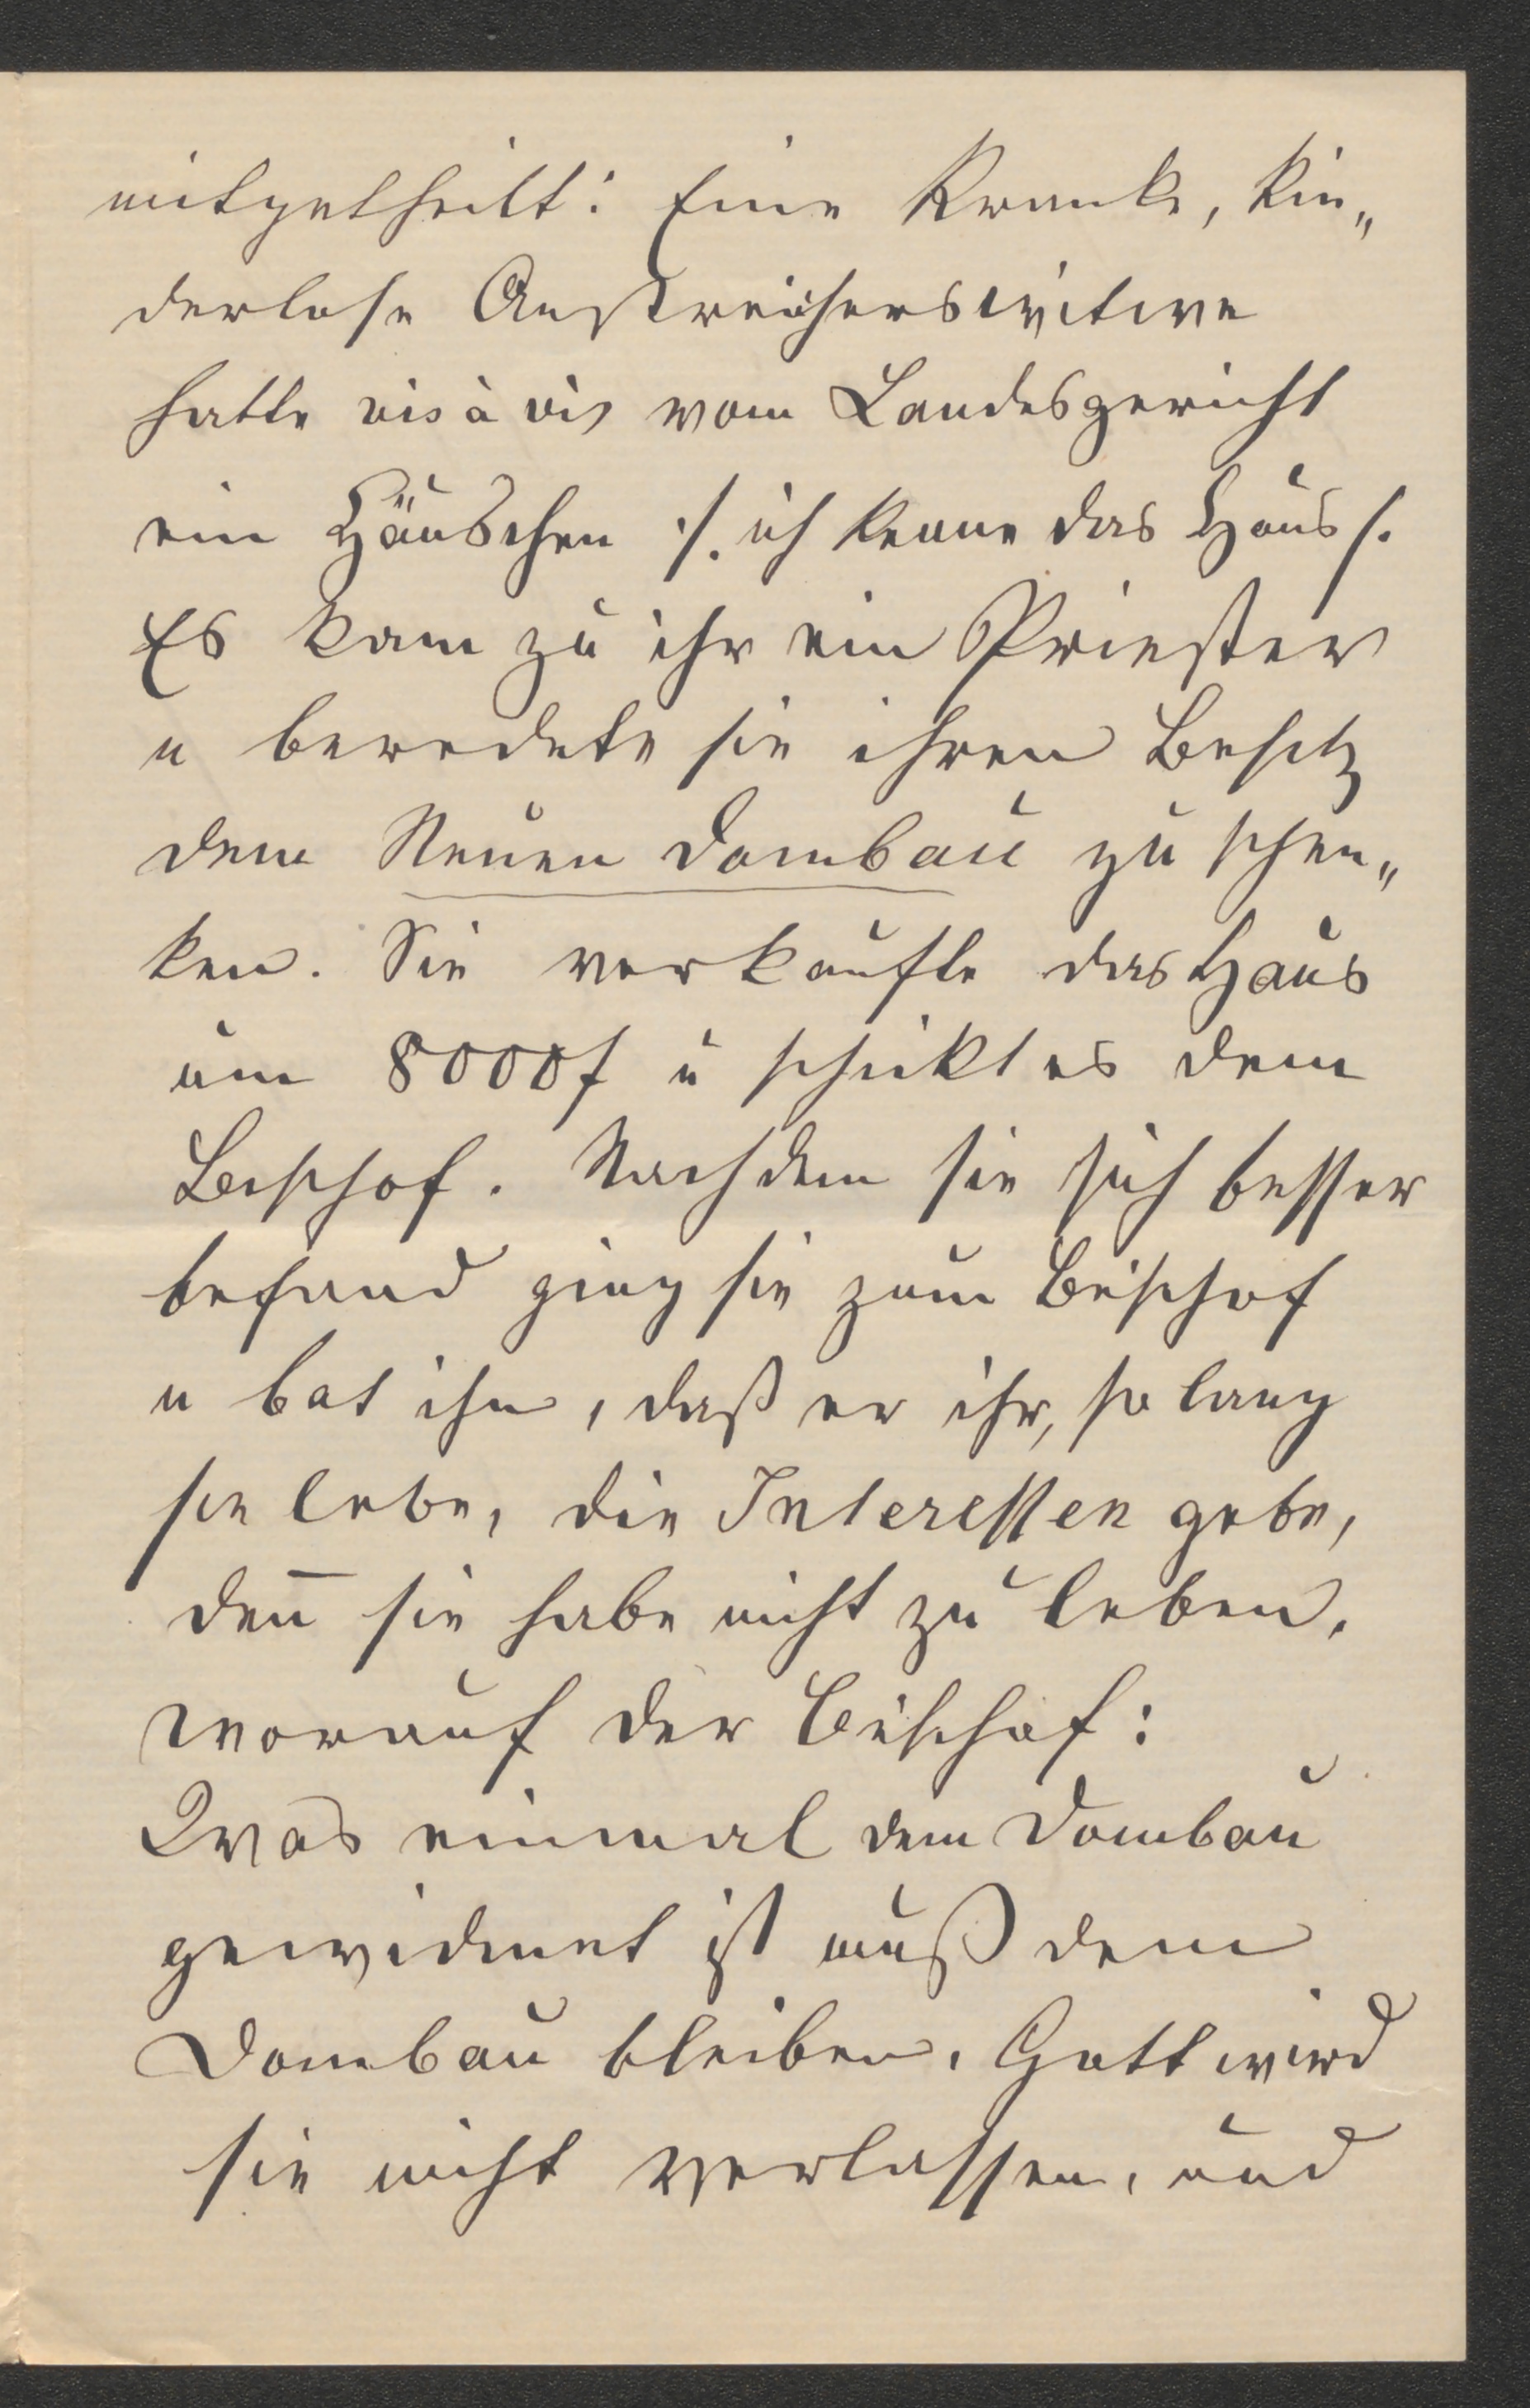 mitgetheilt: Eine Kranke, kin„
derlose Anstreicherswitwe
hatte vis à vis vom Landesgericht
ein Häuschen ./. ich kenne das Haus /.
Es kam zu ihr ein Priester
u beredete sie ihren Besitz
dem Neuen Dombau zu schen„
ken. Sie verkaufte das Haus
um 8000f u schickt es dem
Bischof. Nachdem sie sich besser
befand ging sie zum Bischof
u bat ihn, daß er ihr, so lang
sie lebe, die Interessen gebe,
den̅ sie habe nicht zu leben.
worauf der Bischof:
Was einmal dem Dombau
gewidmet ist muß dem
Dombau bleiben. Gott wird
sie nicht verlassen, und